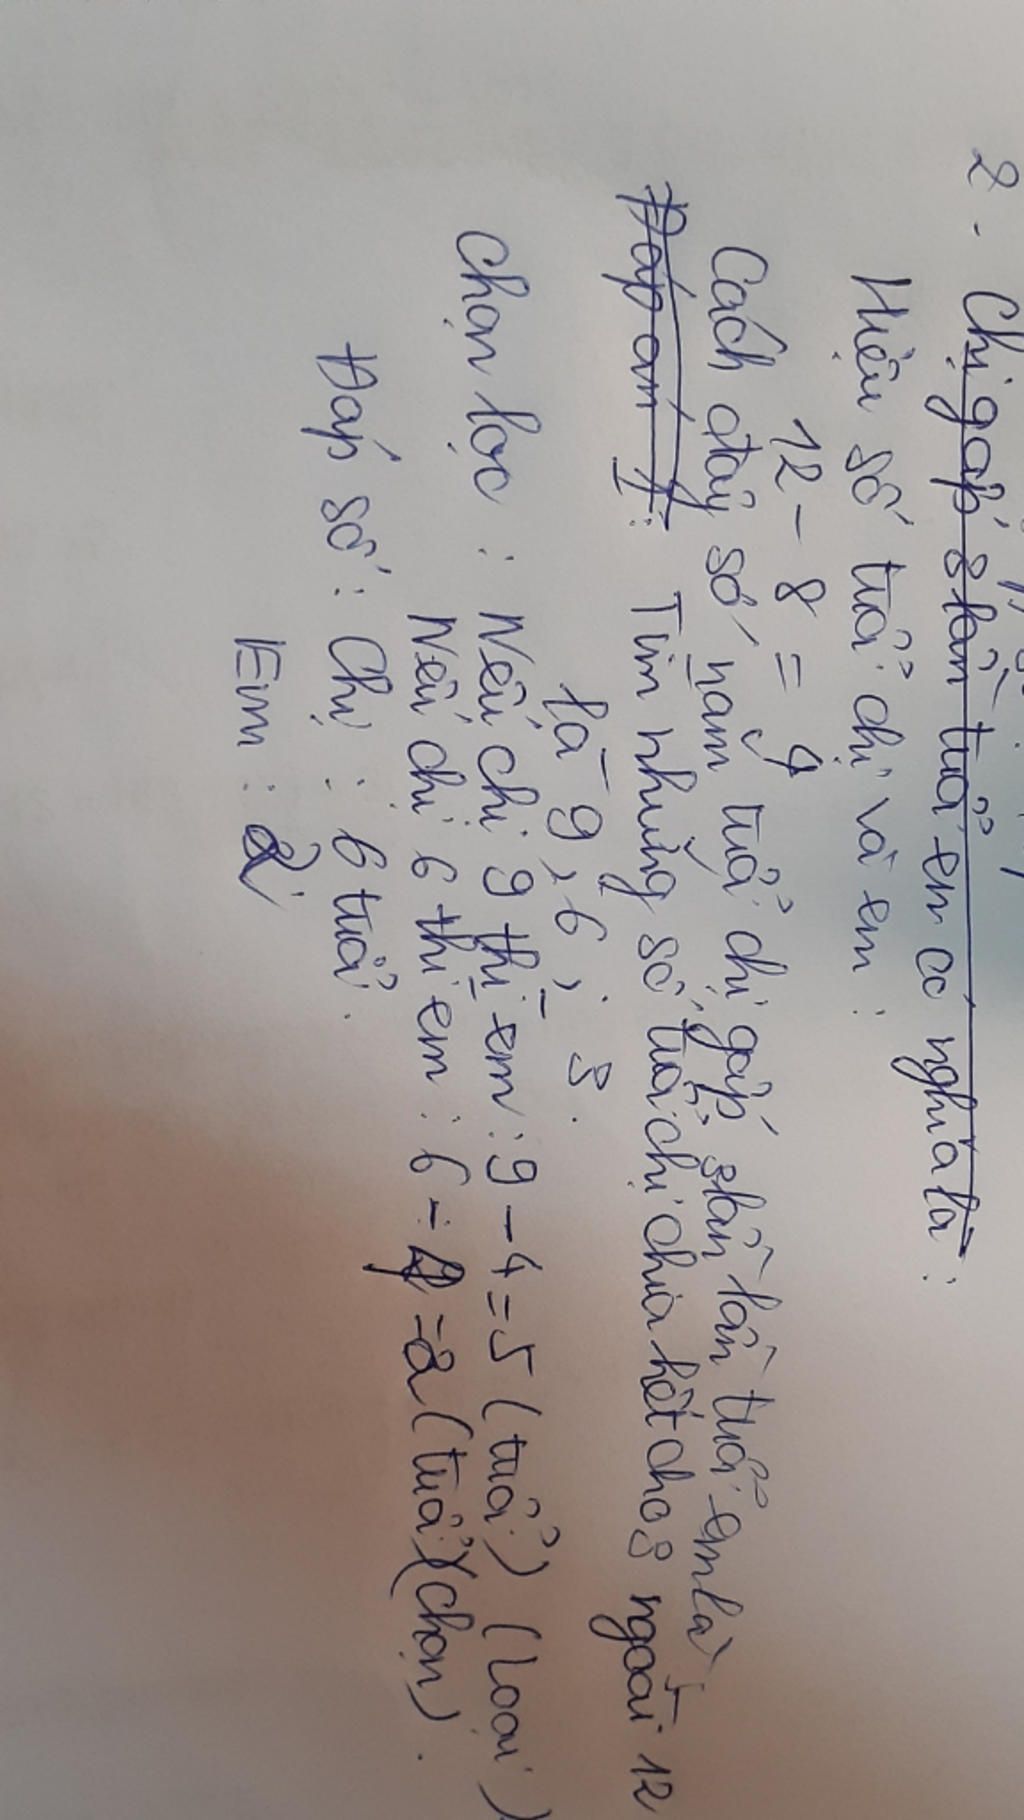 2. Chị gấp 3 lần tuổi em có nghĩa là:
Hiệu số tuổi chị và em:
12 - 8 = 4
Cách đây số năm tuổi chị gấp 3 lần lần tuổi em là:
Đáp án I: Tìm những số tuổi chị chia hết cho 3 ngoài 12
là 9, 6, 3.
Chọn lọc: Nếu chị 9 thì em: 9 - 4 = 5 (tuổi) (loại)
Nếu chị 6 thì em: 6 - 4 = 2 (tuổi) (chọn).
Đáp số: Chị: 6 tuổi.
Em: 2